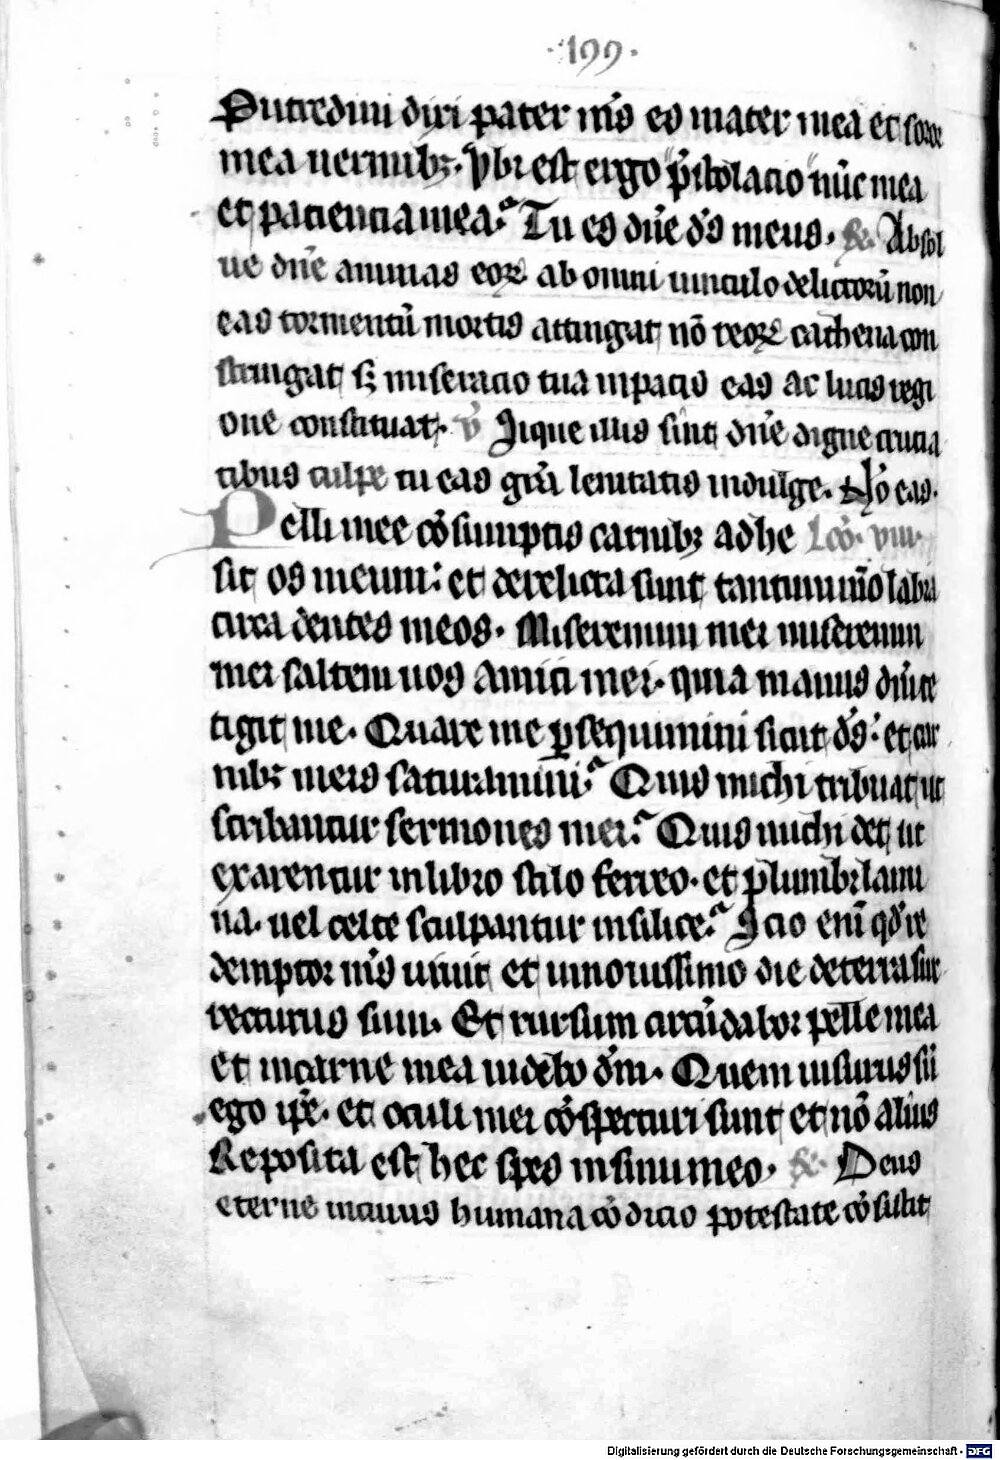 ·199·
Putredini dixi pater mr̄s es mater mea et soror
mea uermibꝫ. Vbi est ergo p̄stolacio nūc mea
et paciencia mea? Tu es dn̄e ds̄ meus. ℟. Absol
ue dn̄e animas eoꝝ ab omni uinculo delictorū non
eas tormentū mortis attingat nō reoꝝ cathena con
stringat sꝫ miseracio tua inpacis eas ac lucis regi
one constituat. v̄ Sique illis sint dn̄e digne crucia
tibus culpe tu eas gr̄a lenitatis indulge. No eas.
Pelli mee cō sumptis carnibꝫ adhe Lcō. viii.
sit os meum: et derelicta sunt tantummō labia
circa dentes meos. Miseremini mei miseremini
mei saltem uos amici mei. quia manus dn̄i te
tigit me. Quare me ꝑsequimini sicut ds̄: et car
nibꝫ meis saturamini? Quis michi tribuat ut
scribantur sermones mei? Quis michi det ut
exarentur in libro stilo ferreo. et plumbi lami
na. uel celte sculpantur insilice? Scio enī qd̄ re
demptor mr̄s uiuit et innouissimo die deterra sur
recturus sum. Et rursum circūdabor pelle mea
et incarne mea uidebo dm̄. Quem uisurus sū
ego ip̄e. et oculi mei cō specturi sunt et nō alius
Reposita est hec spes insinu meo. ℟. Deus
eterne incuius humana cō dicio potestate cō sistit
Digitalisierung gefördert durch die Deutsche Forschungsgemeinschaft - DFG